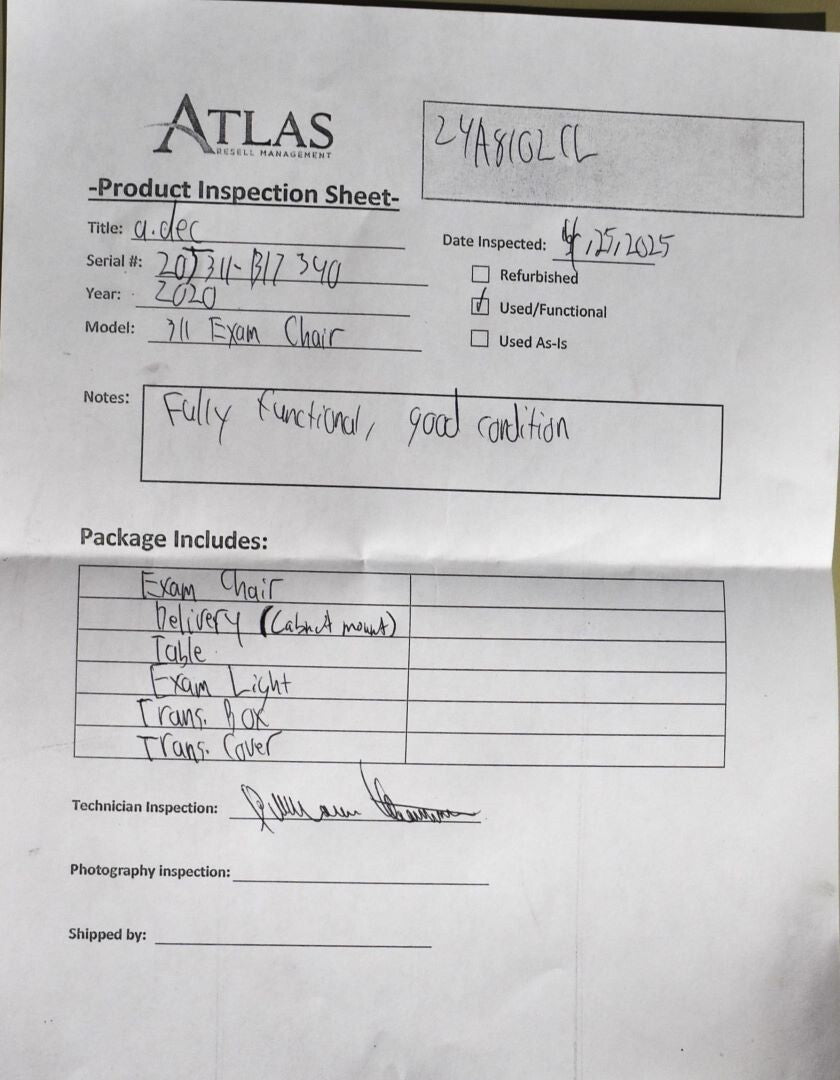 ATLAS
RESELL MANAGEMENT
24A8102CL
-Product Inspection Sheet-
Title: a.dec
Date Inspected: ,25,2025
Serial #:
Refurbished
Year: 2020
Used/Functional
Model: 311 Exam Chair
Used As-Is
Notes: Fully Functional, good condition
Package Includes:
Exam Chair
Delivery (Cabnet mount)
Table
Exam Light
Trans. Box
Trans. Cover
Technician Inspection:
Photography inspection:
Shipped by: